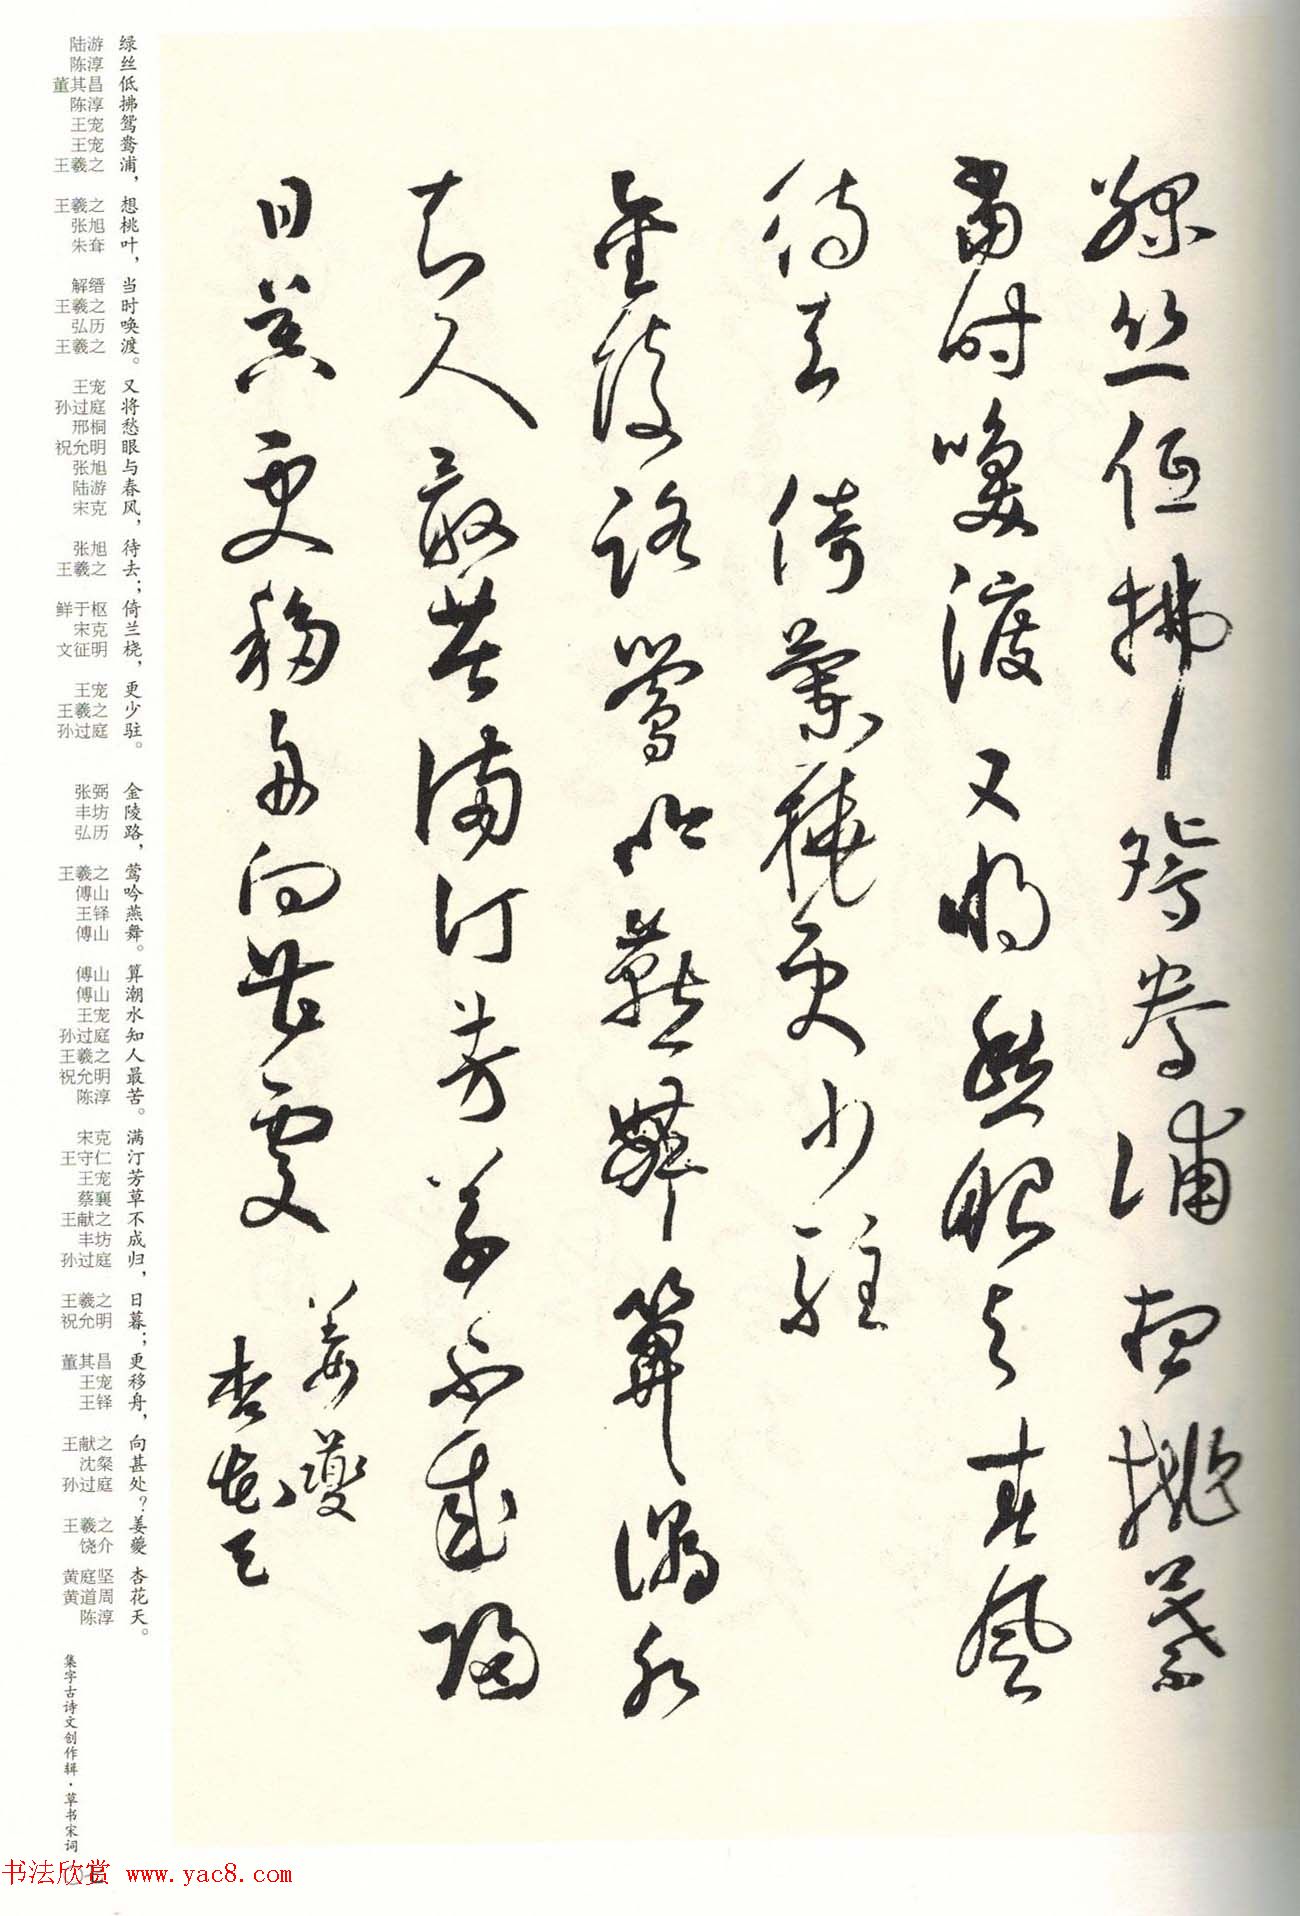 綠丝低拂鸳鸯浦想桃葉
當时唤渡又将愁眼与春風
待去倚蘭桡更少駐
金陵路莺吟燕舞算潮水
知人最苦满汀芳草不成归
日暮更移舟向甚處
姜夔
杏花天
绿丝低拂鸳鸯浦，想桃叶，当时唤渡。又将愁眼与春风，待去；倚兰桡，更少驻。
金陵路，莺吟燕舞。算潮水知人最苦。满汀芳草不成归，日暮；更移舟，向甚处？姜夔 杏花天。
陆游 陈淳 董其昌 陈淳 王宠 王宠 王羲之 王羲之 张旭 朱耷 解缙 王羲之 弘历 王羲之 王宠 孙过庭 邢桐 祝允明 张旭 陆游 宋克 张旭 王羲之 鲜于枢 宋克 文征明 王宠 王羲之 孙过庭
张弼 丰坊 弘历 王羲之 傅山 王铎 傅山 傅山 傅山 王宠 孙过庭 王羲之 祝允明 陈淳 宋克 王守仁 王宠 蔡襄 王献之 丰坊 孙过庭 王羲之 祝允明 董其昌 王宠 王铎 王献之 沈粲 孙过庭 王羲之 饶介 黄庭坚 黄道周 陈淳
集字古诗文创作辑·草书宋词
书法欣赏 www.yac8.com